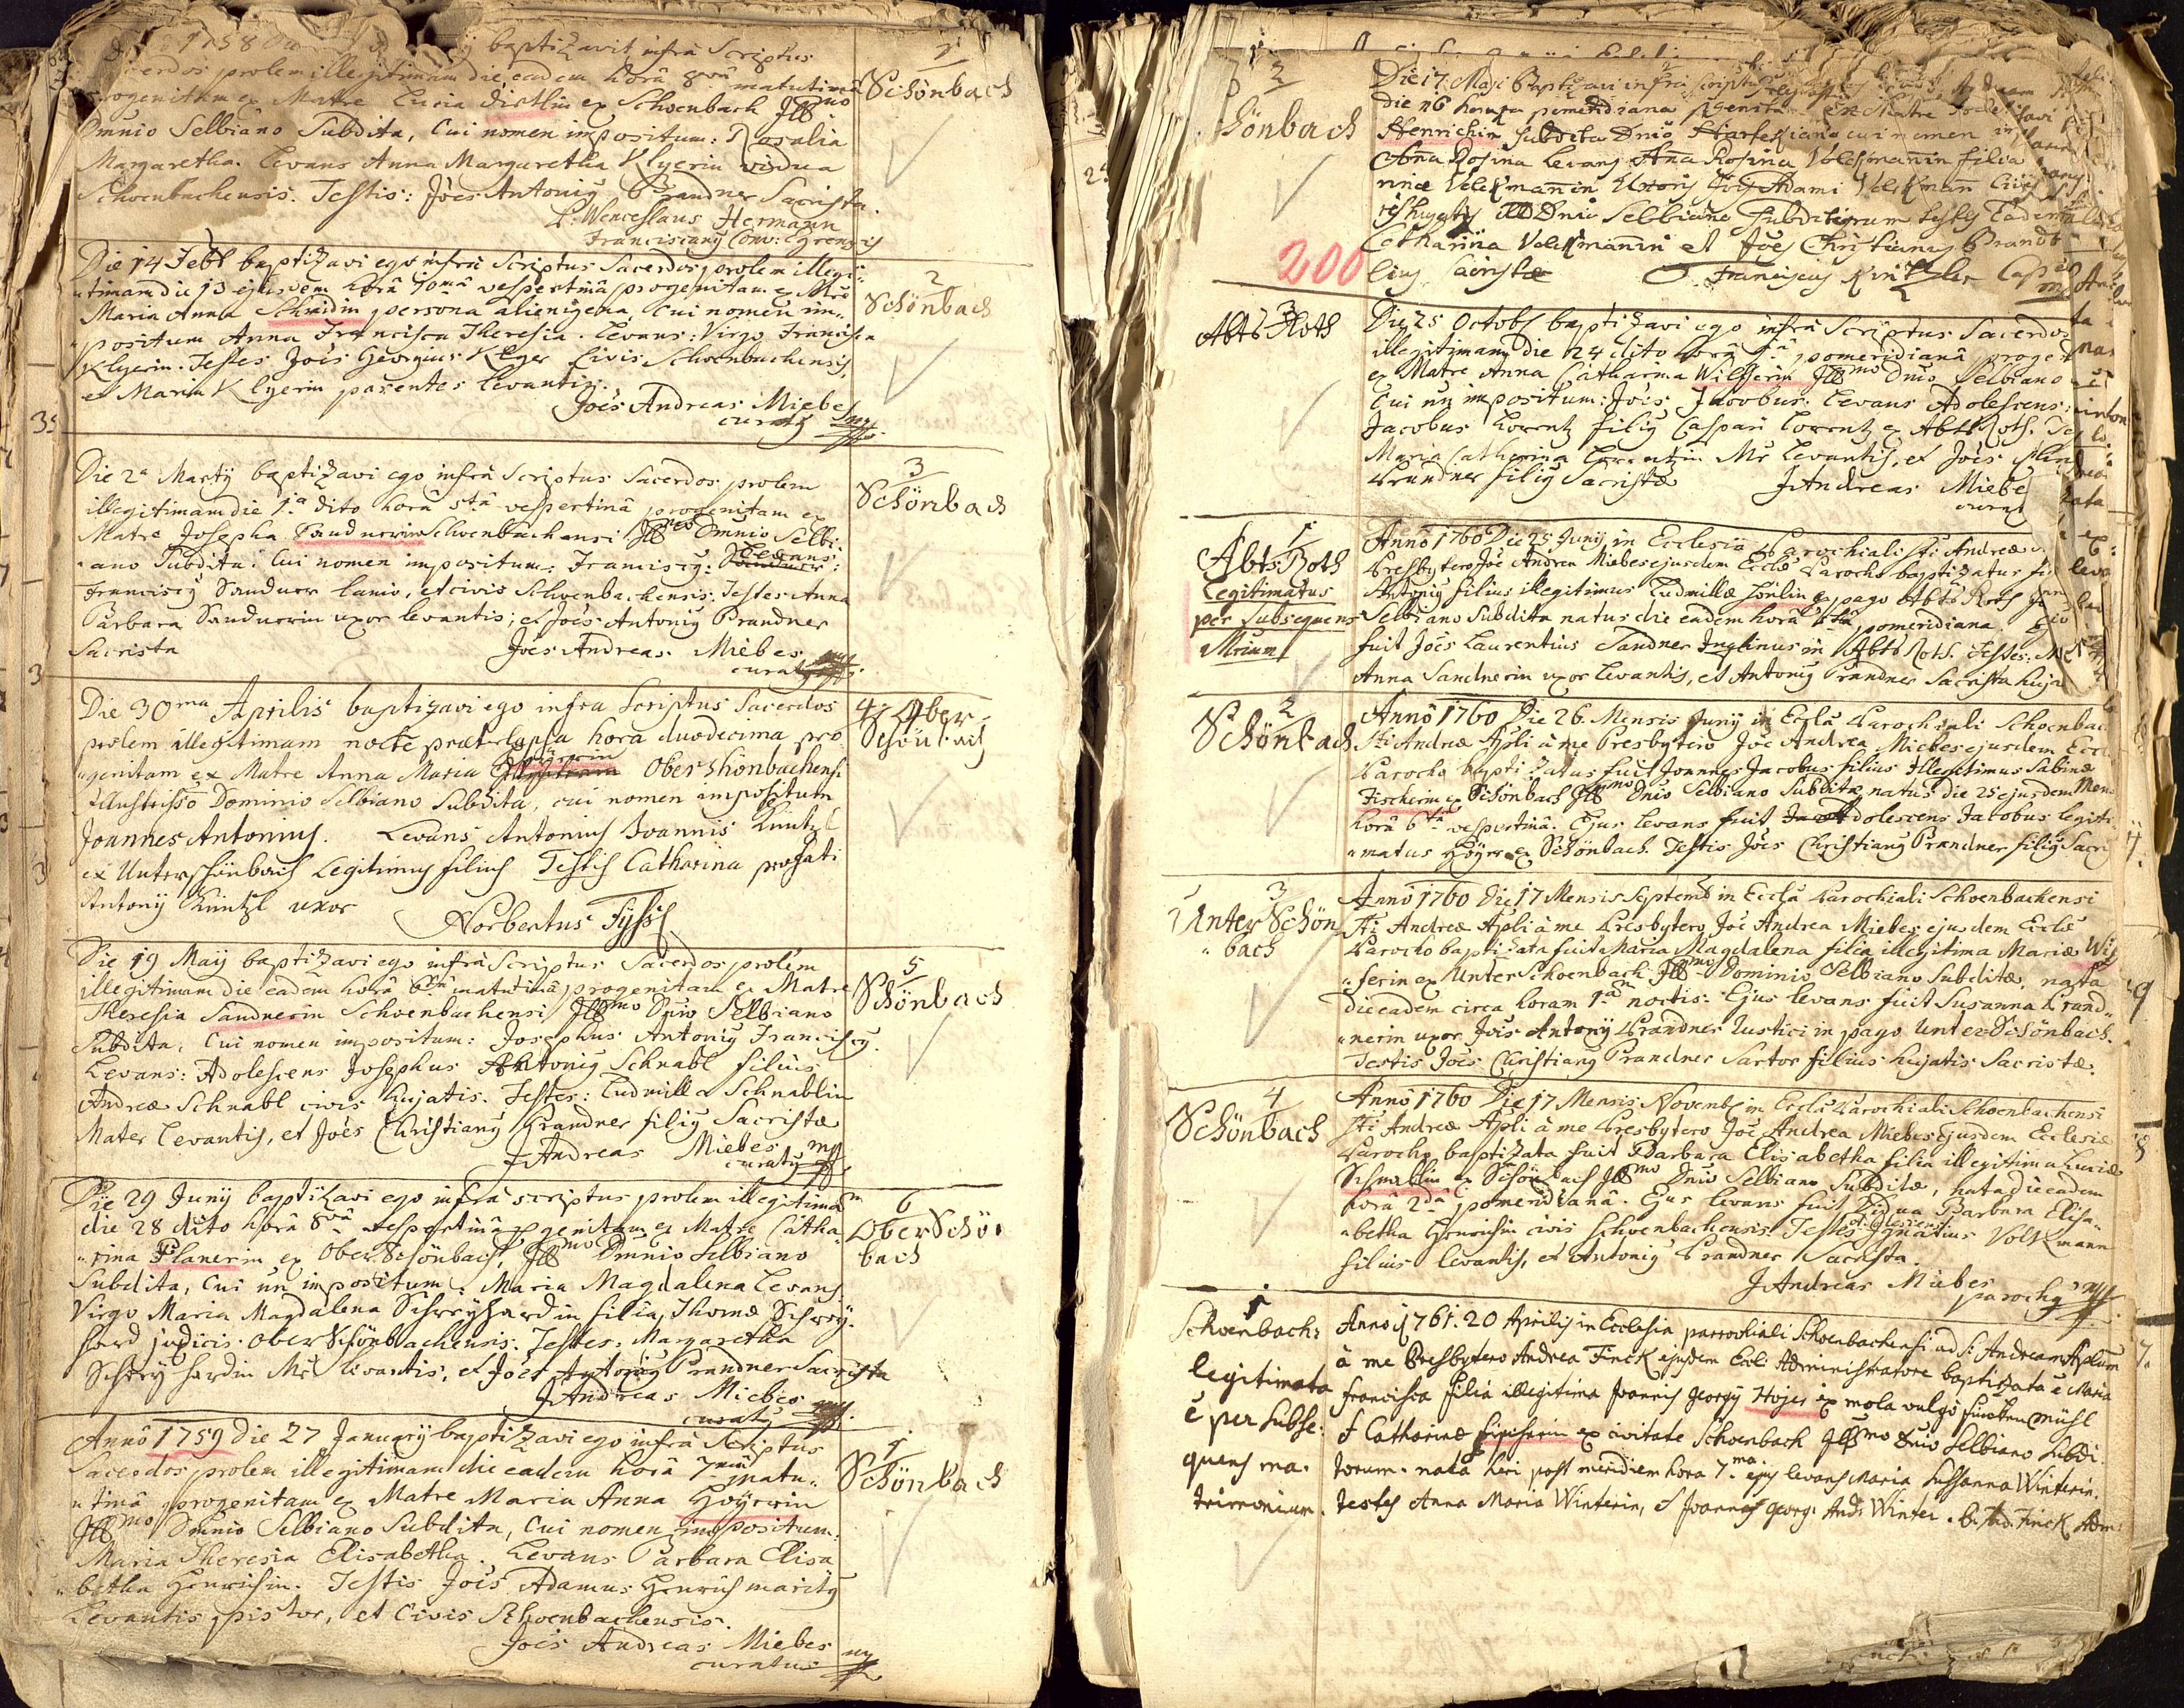 1758 baptizavit infra Scriptus
prolem illegitimam die eadem horâ 8vâ matutinâ
progenitam ex Matre Lucia Distlin ex Schoenbach Illmo
Dmnio Selbiano Subdita, Cui nomen impositum: Rosalia
Margaretha. Levans Anna Margaretha Klyerin vidua
Schoenbachensis. Testis: Joës Antonig Prandner Sacrista.
P. Wenceslaus Hermann
Franciscang Conv: Egrensis
1
Schönbach
Die 14 Febr baptizavi ego infrà Scriptus Sacerdos prolem illegi
timam die 13 ejusdem horâ 10mâ vespertinâ progenitam ex Mre
Maria Anna Schmidin persona alienigena, Cui nomen im
positum Anna Francisca Theresia. Levans: Virgo Francisca
Klyerin. Testes Joës Georgius Klyer Civis Schoenbachensis,
et Maria Klyerin parentes levantis.
Joës Andreas Miebes
curatg mp
2
Schönbach
Die 2a Martÿ baptizavi ego infrà Scriptus Sacerdos prolem
illegitimam die 1a dito horâ 5tâ vespertinâ progenitam ex
Matre Josepha Sandnerin Schoenbachensi Illmo Dmnio Selbi
ano Subdita: Cui nomen impositum: Franciscg: Levans:
Franciscg Sandner lanio, et civis Schoenbachensis. Testes Anna
Barbara Sandnerin uxor levantis; et Joës Antonig Prandner
Sacrista
Joës Andreas Miebes
curatg mp
3
Schönbach
Die 30ma Aprilis baptizavi ego infra Scriptus Sacerdos
prolem illegitimam nocte praeterlapsa hora duodecima pro
genitam ex Matre Anna Maria Oberschönbachensi
Illustrisso Dominio Selbiano Subdita, cui nomen impositum
Joannes Antonius. Levans Antonius Joannis Küntzl
ex Unterschönbach Legitimus filius Testis Catharina prefati
Antonÿ Küntzl uxor
Norbertus
4 Ober
Schönbach
Die 19 Maÿ baptizavi ego infrà Scriptus Sacerdos prolem
illegitimam die eadem horâ 6tâ matutinâ progenitam ex Matre
Theresia Sandnerin Schoenbachensi Illmo Dnio Selbiano
Subdita, Cui nomen impositum: Josephus Antonig Franciscg.
Levans: Adolescens Josephus Antonig Schnabl filius
Andreæ Schnabl civis hujatis. Testes: Ludmilla Schnablin
Mater levantis, et Joës Christiang Prandner filig Sacristæ
J Andreas Miebes
curatg mp
5
Schönbach
Die 29 Junÿ baptizavi ego infrà scriptus prolem illegitimam
die 28 dito horâ 8vâ vespertinâ pgenitam ex Matre Catha
rina Planerin ex OberSchönbach, Illmo Dmnio Selbiano
Subdita, Cui nn impositum: Maria Magdalena Levans:
Virgo Maria Magdalena Schreÿhardin filia Thomæ Schreÿ
hard judicis OberSchönbachensis. Testes: Margaretha
Schreÿhardin Mr levantis, et Joës Antonig Prandner Sacrista
J Andreas Miebes
curatg mp
6
OberSchön
bach
Annô 1759 die 27 Januarÿ baptizavi ego infrà Scriptus
Sacerdos prolem illegitimam die eadem horâ 7mâ matu
tinâ progenitam ex Matre Maria Anna Hoÿerin
Illmo Dmnio Selbiano Subdita, Cui nomen impositum:
Maria Theresia Elisabetha. Levans Barbara Elisa
betha Henrichin. Testis Joës Adamus Henrich maritg
Levantis pistor, et Civis Schoenbachensis.
Joës Andreas Miebes
curatus mp
1
Schönbach
2
Schönbach
200
Die 17 Maji Baptizavi infra scriptus
die 16 pomeridiana pgenitam ex Matre
Henrichin Subdita Dnio Hartesiano cui nomen
Anna Rosina Levans Anna Rosina Volckmannin filia
Volckmannin Uxoris Joës Adami Volckmann Civis
Dnio Selbiano Subditorum testes Eadem
Catharina Volckmannin et Joës Christiang Brandt
filig Sacristæ Franciscg Kintzler
3
Abts Roth
Die 25 Octobr baptizavi ego infrà Scriptus Sacerdos
illegitimam die 24 dito horâ 1â pomeridianâ
ex Matre Anna Catharina Wilfferin Illmo Dnio Selbiano
Cui nn impositum: Joës Jacobus. Levans Adolescens
Jacobus Lorentz filig Caspari Lorentz ex Abts Roth.
Maria Catherina Lorentzin Mr Levantis, et Joës
Prandner filig Sacristæ J Andreas Miebes
1
Abts Roth
Legitimatus
per Subsequens
Mrium
Annô 1760 Die 25 Junÿ in Ecclesiâ Parochiali Sti Andreæ
Presbytero Joë Andrea Miebes ejusdem Eccle Parocho baptizatus
Antonig filius illegitimus Ludmillæ Hönlin ex pago Abts Roth
Selbiano Subdita natus die eadem horâ pomeridiana
fuit Joës Laurentius Sandner Inqlinus in Abts Roth. Testes:
Anna Sandnerin uxor levantis, et Antonig Prandner Sacrista
2
Schönbach
Annô 1760 Die 26 Mensis Junÿ in Ecclâ Parochiali Schoenbac
Sti Andreæ Apli à me Presbytero Joë Andrea Miebes ejusdem
Parocho baptizatus fuit Joannes Jacobus filius Illegitimus Sabinæ
Fischerin ex Schönbach Illmo Dnio Selbiano Subditæ, natus die 25 ejusdem
horâ 6tâ vespertinâ. Ejus levans fuit Adolescens Jacobus legiti
matus Höyer ex Schönbach. Testis Joës Christiang Prandner filig Sacri
3
Unter Schön
bach
Annô 1760 Die 17 Mensis Septemb in Ecclâ Parochiali Schoenbachensi
Sti Andreæ Apli à me Presbytero Joë Andrea Miebes ejusdem Eccle
Parocho baptizata fuit Maria Magdalena filia illegitima Mariæ Wil
ferin ex Unter Schoenbach Illmo Dominio Selbiano Subditæ, nata
die eadem circa horam 1am noctis. Ejus levans fuit Susanna Prand
nerin uxor Joës Antonÿ Prandner Rustici in pago UnterSchönbach.
Testis Joës Christiang Prandner Sartor filius hujatis Sacristæ.
4
Schönbach
Annô 1760 Die 17 Mensis Novemb in Ecclâ Parochiali Schoenbachensi
Sti Andreæ Apli à me Presbytero Joë Andrea Miebes ejusdem Ecclesiæ
Parocho baptizata fuit Barbara Elisabetha filia illegitima Luciæ
Schnablin ex Schönbach Illmo Dnio Selbiano Subditæ, nata die eadem
horâ 2dâ pomeridianâ. Ejus levans fuit Vidua Barbara Elisa
betha Henrichin civis Schoenbachensis. Testes Ignatius Voltzmann
filius levantis, et Antonig Prandner Sacrista.
J Andreas Miebes
parochg mp
1
Schoenbach:
legitimata
ê per Subse:
quens ma:
trimonium.
Anno 1761. 20 Aprilis in Ecclesia parrochiali Schoenbachensi ad S: Andream Aplum
à me Presbytero Andrea Finck ejusdem Ecclæ Administratore baptizata ê Maria
Francisca filia illegitima Joannis Georgÿ Hojer ex mola vulgo mühl
et Catharinæ ex civitate Schoenbach Illmo Dnio Selbiano Subdi
torum. nata heri post meridiem hora 7ma ejus levans Maria Sussanna Winterin.
testes Anna Maria Winterin, et Joannes Georg: And: Winter. P. And. Finck Adm: